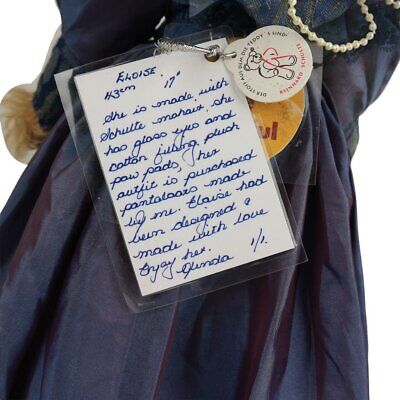 ELOISE
43cm 17"
She is made with
Schulte mohair, she
has glass eyes and
cotton filling, pluch
paw pads, her
outfit is purchased
pantaloons made
by me. Eloise had
been designed &
made with love
Enjoy her. 1/1.
Olinda
DER STOFF AUS DEM DIE TEDDY'S SIND!
SCHULTE
ul